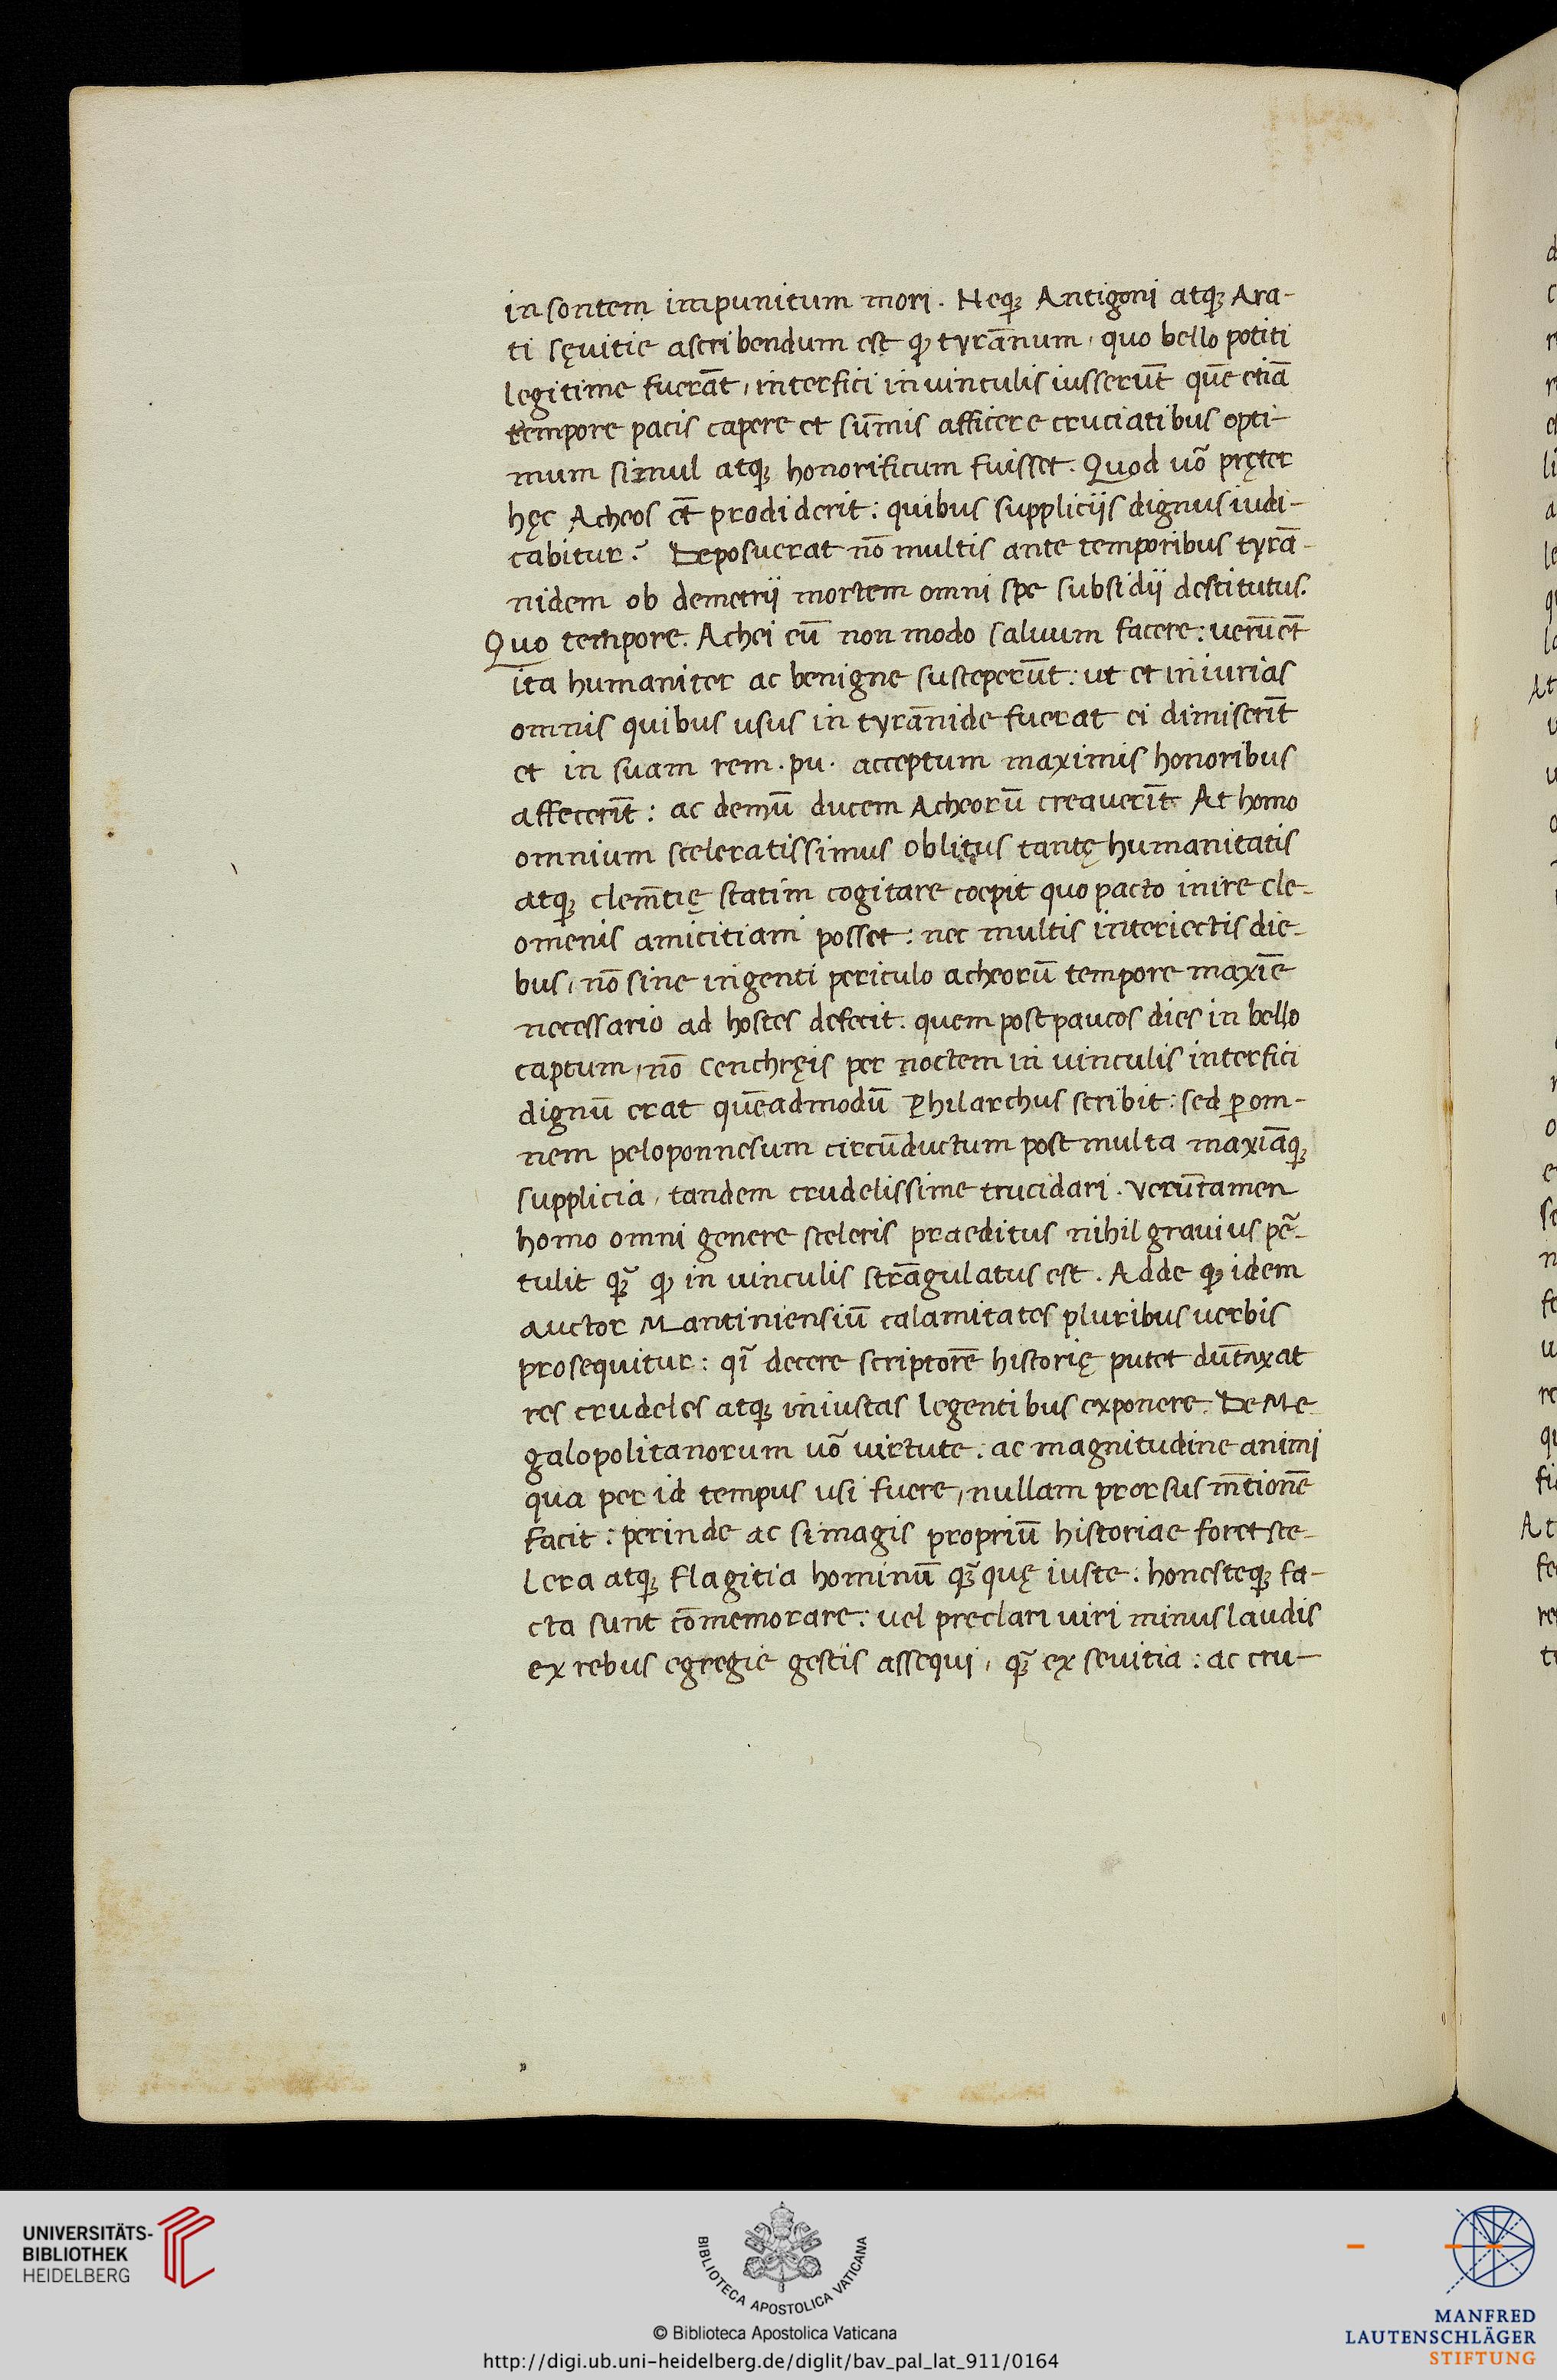 insontem impunitum mori. Neq; Antigoni atq; Ara-
ti sęuitie ascribendum est ꝙ tyrãnum, quo bello potiti
legitime fuerãt, interfici in uinculis iusserũt quẽ etiã
tempore pacis capere et sũmis afficere cruciatibus opti-
mum simul atq; honorificum fuisset. Quod uõ pręter
hęc Acheos et̃ prodiderit: quibus suppliciis dignus iudi-
cabitur? Deposuerat nõ multis ante temporibus tyrã-
nidem ob demetrij mortem omni spe subsidij destitutus.
Quo tempore. Achei eũ non modo saluum facere: uerũet̃
ita humaniter ac benigne susceperũt: ut et iniurias
omnis quibus usus in tyrãnide fuerat ei dimiserĩt
et in suam rem. pu. acceptum maximis honoribus
affecerĩt: ac demũ ducem Acheorũ creauerĩt. At homo
omnium sceleratissimus oblitus tantę humanitatis
atq; clem̃tię statim cogitare coepit quo pacto inire cle-
omenis amicitiam posset: nec multis interiectis die-
bus, nõ sine ingenti periculo acheorũ tempore maxĩe
necessario ad hostes defecit. quem post paucos dies in bello
captum, nõ Cenchręis per noctem in uinculis interfici
dignũ erat quẽadmodũ Philarchus scribit: sed ꝑ om-
nem peloponnesum circũductum post multa maxiãq;
supplicia, tandem crudelissime trucidari. Verũtamen
homo omni genere sceleris praeditus nihil grauius pẽ-
tulit q̃ ꝙ in uinculis strãgulatus est. Adde ꝙ idem
auctor Mantiniensiũ calamitates pluribus uerbis
prosequitur: qĩ decere scriptorẽ historię putet dũtaxat
res crudeles atq; iniustas legentibus exponere. De Me
galopolitanorum uõ uirtute: ac magnitudine animi
qua per id tempus usi fuere, nullam prorsus m̃tionẽ
facit: perinde ac si magis propriũ historiae foret sce-
lera atq; flagitia hominũ q̃ quę iuste: honesteq; fa-
cta sunt cõmemorare: uel preclari uiri minus laudis
ex rebus egregie gestis assequi, q̃ ex seuitia: ac cru-
UNIVERSITÄTS-
BIBLIOTHEK
HEIDELBERG
BIBLIOTECA APOSTOLICA VATICANA
© Biblioteca Apostolica Vaticana
http://digi.ub.uni-heidelberg.de/diglit/bav_pal_lat_911/0164
MANFRED
LAUTENSCHLÄGER
STIFTUNG